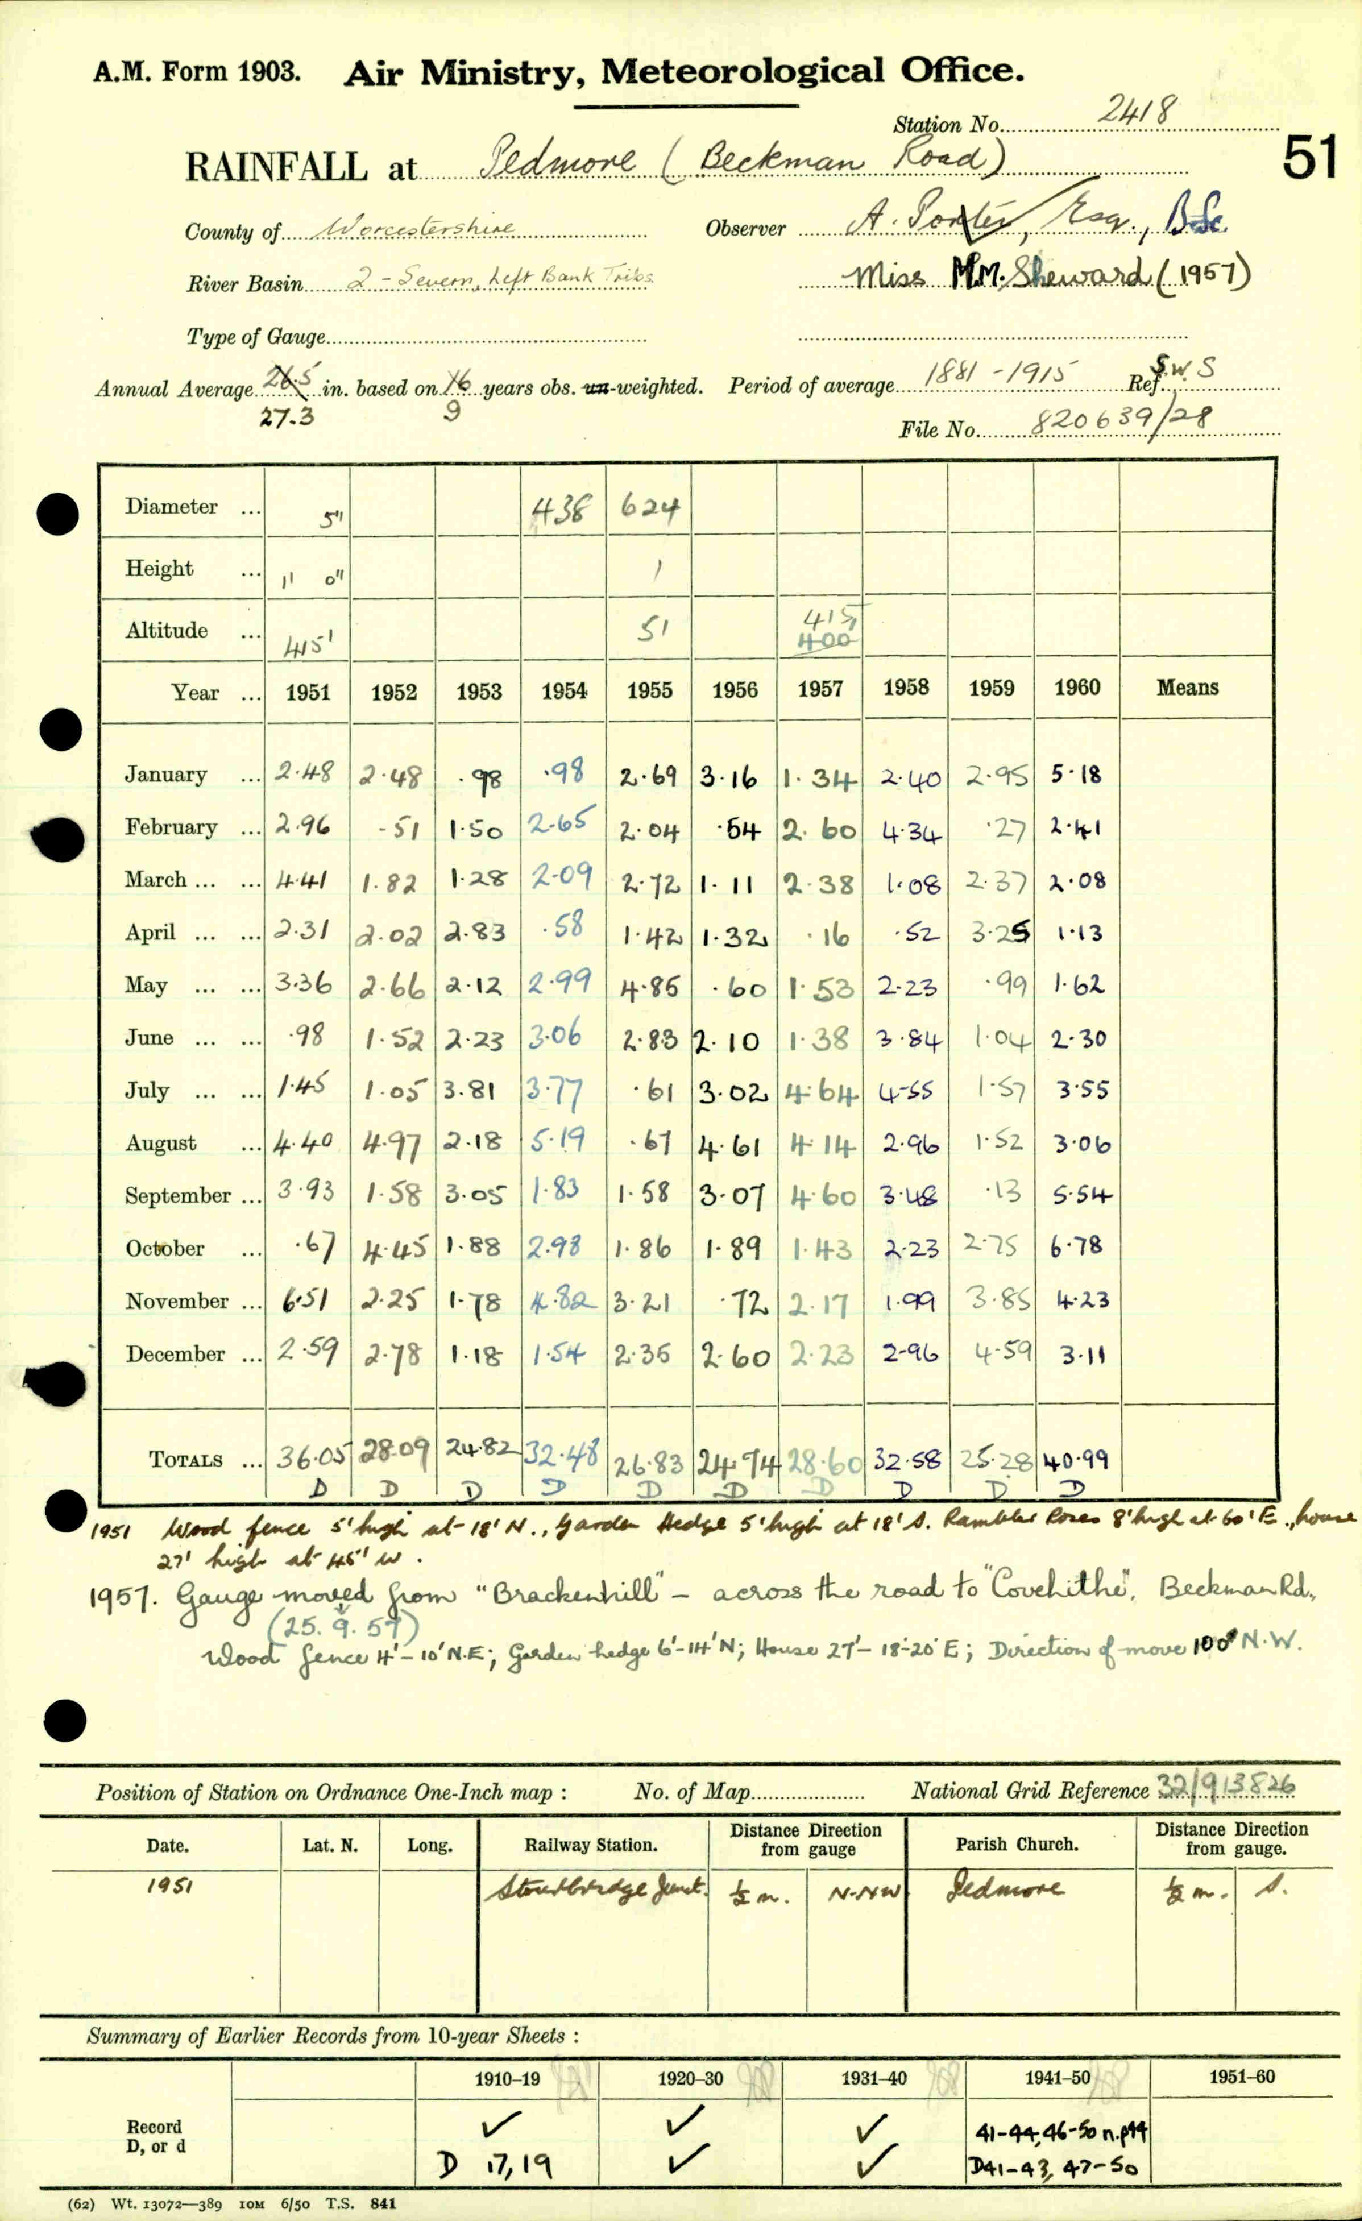 A.M. Form 1903. Air Ministry, Meteorological Office.
Station No. 2418
51
RAINFALL at Pedmore (Beckman Road)
County of Worcestershire Observer A. Porter, Esq., B.Sc.
River Basin 2 - Severn, Left Bank Tribs. Miss M.M. Sheward (1957)
Type of Gauge
Annual Average 26.5 in. based on 16 years obs. un-weighted. Period of average 1881-1915 Ref. S.W.S
27.3 9
File No. 820639/28
Diameter ... 5" 438 624
Height ... 1' 0" 1
Altitude ... 415' 51 415
400
Year ... 1951 1952 1953 1954 1955 1956 1957 1958 1959 1960 Means
January ... 2.48 2.48 .98 .98 2.69 3.16 1.34 2.40 2.95 5.18
February ... 2.96 .51 1.50 2.65 2.04 .54 2.60 4.34 .27 2.41
March ... ... 4.41 1.82 1.28 2.09 2.72 1.11 2.38 1.08 2.37 2.08
April ... ... 2.31 2.02 2.83 .58 1.42 1.32 .16 .52 3.25 1.13
May ... ... 3.36 2.66 2.12 2.99 4.85 .60 1.53 2.23 .99 1.62
June ... ... .98 1.52 2.23 3.06 2.83 2.10 1.38 3.84 1.04 2.30
July ... ... 1.45 1.05 3.81 3.77 .61 3.02 4.64 4.55 1.57 3.55
August ... 4.40 4.97 2.18 5.19 .67 4.61 4.14 2.96 1.52 3.06
September ... 3.93 1.58 3.05 1.83 1.58 3.07 4.60 3.48 .13 5.54
October ... .67 4.45 1.88 2.98 1.86 1.89 1.43 2.23 2.75 6.78
November ... 6.51 2.25 1.78 4.82 3.21 .72 2.17 1.99 3.85 4.23
December ... 2.59 2.78 1.18 1.54 2.35 2.60 2.23 2.96 4.59 3.11
TOTALS ... 36.05 28.09 24.82 32.48 26.83 24.74 28.60 32.58 25.28 40.99
D D D D D D D D D D
1951 Wood fence 5' high at 18' N., Garden Hedge 5' high at 18' S. Rambler Roses 8' high at 60' E., house
27' high at 45' W.
1957. Gauge moved from "Brackenhill" - across the road to "Covehithe", Beckman Rd.,
(25.9.57)
Wood fence 4'-10' N.E; Garden hedge 6'-14' N; House 27'-18-20' E; Direction of move 100' N.W.
Position of Station on Ordnance One-Inch map : No. of Map National Grid Reference 32/913826
Date. Lat. N. Long. Railway Station. Distance Direction from gauge Parish Church. Distance Direction from gauge.
1951 Stourbridge Junct. ½ m. N-NW Pedmore ½ m. S.
Summary of Earlier Records from 10-year Sheets :
1910-19 1920-30 1931-40 1941-50 1951-60
Record ✓ ✓ ✓ 41-44, 46-50 n.p44
D, or d D 17, 19 ✓ ✓ D41-43, 47-50
(62) Wt. 13072—389 10M 6/50 T.S. 841